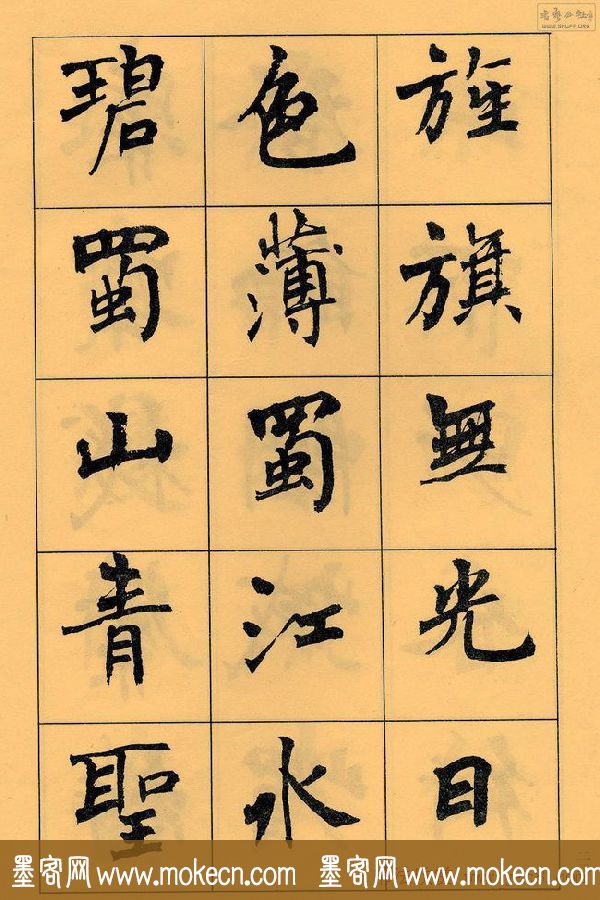 旌旗無光日
色薄蜀江水
碧蜀山青聖
墨客网 www.mokecn.com 墨客网 www.mokecn.com